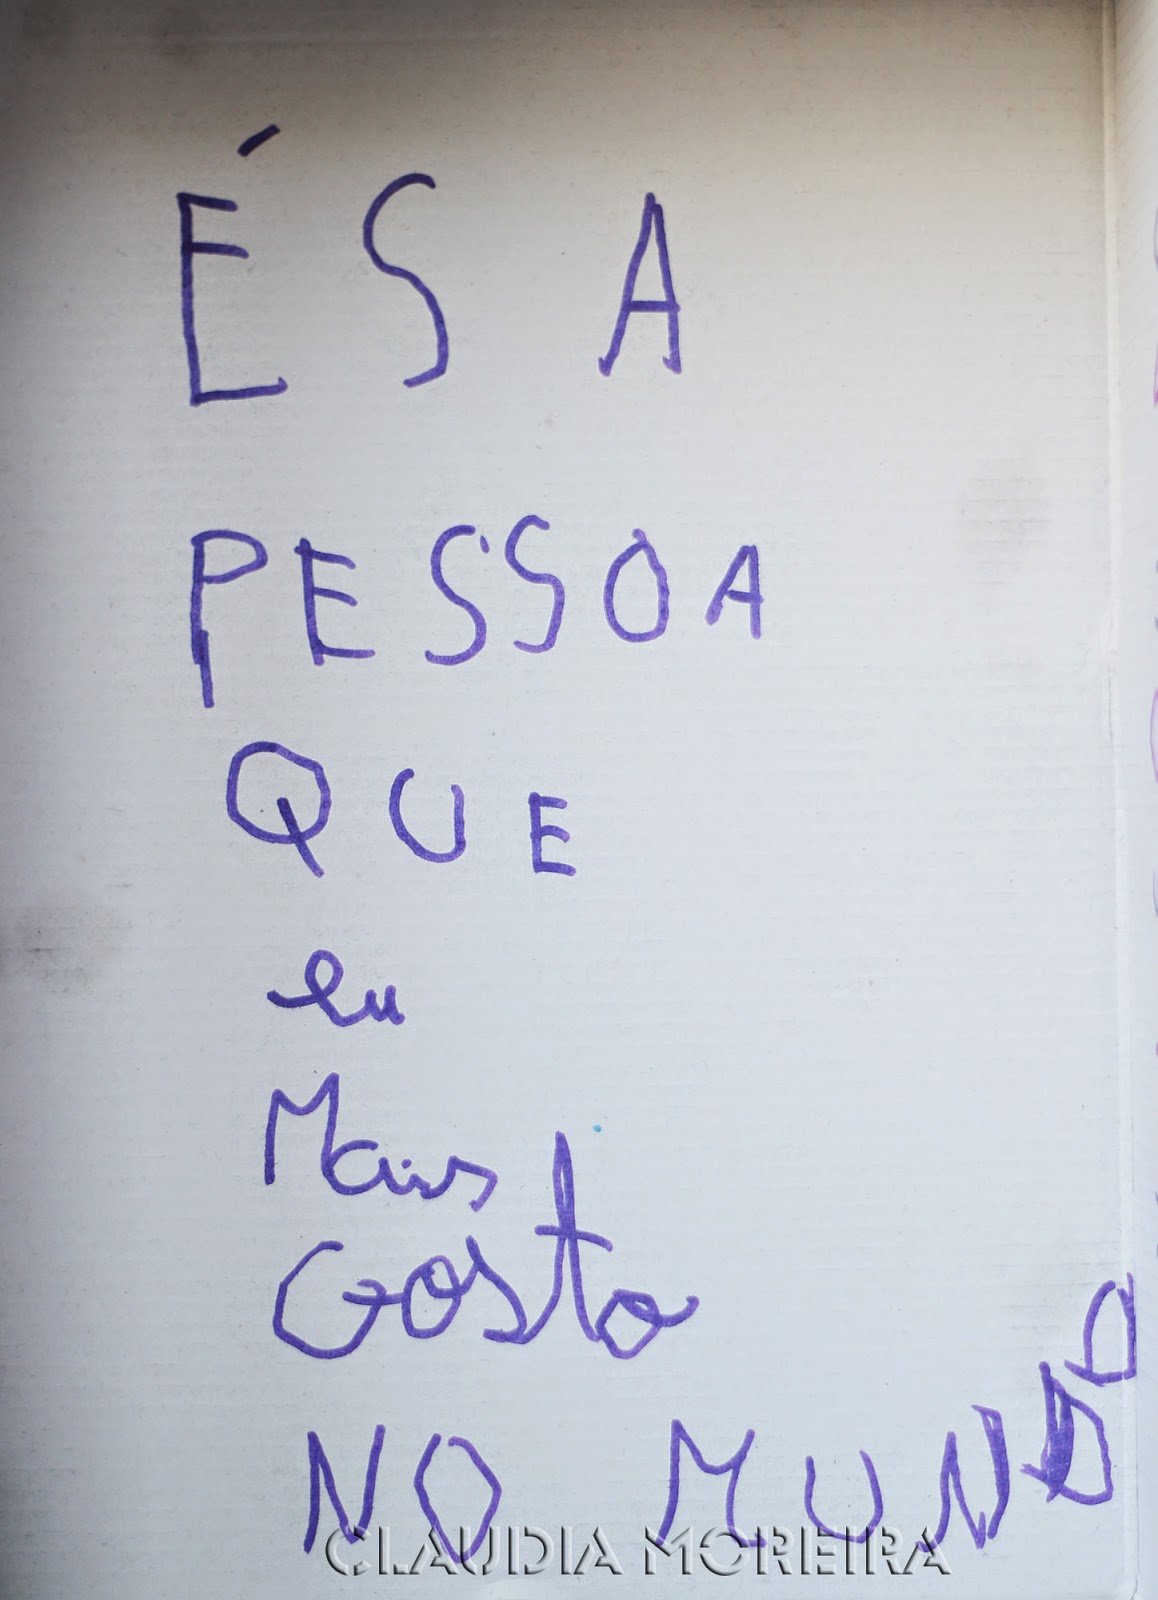 ÉS A
PESSOA
QUE
eu
Mais
Gosto
NO MUNDO
CLAUDIA MOREIRA